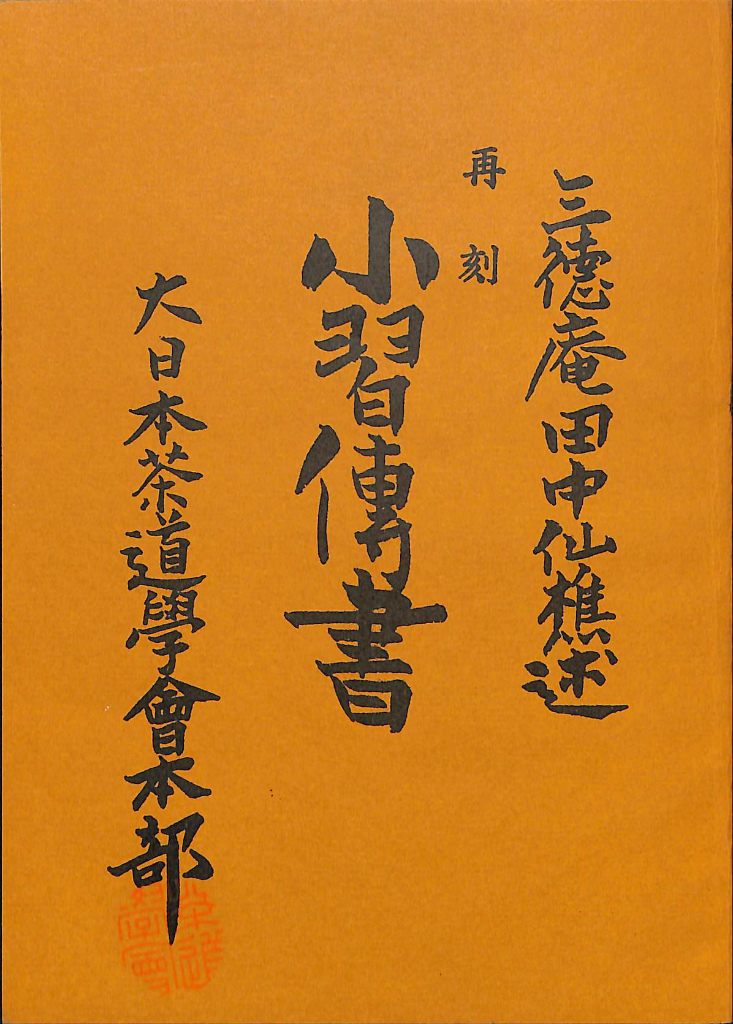 三徳庵田中仙樵述
再刻
小習傳書
大日本茶道學會本部
茶道
學會